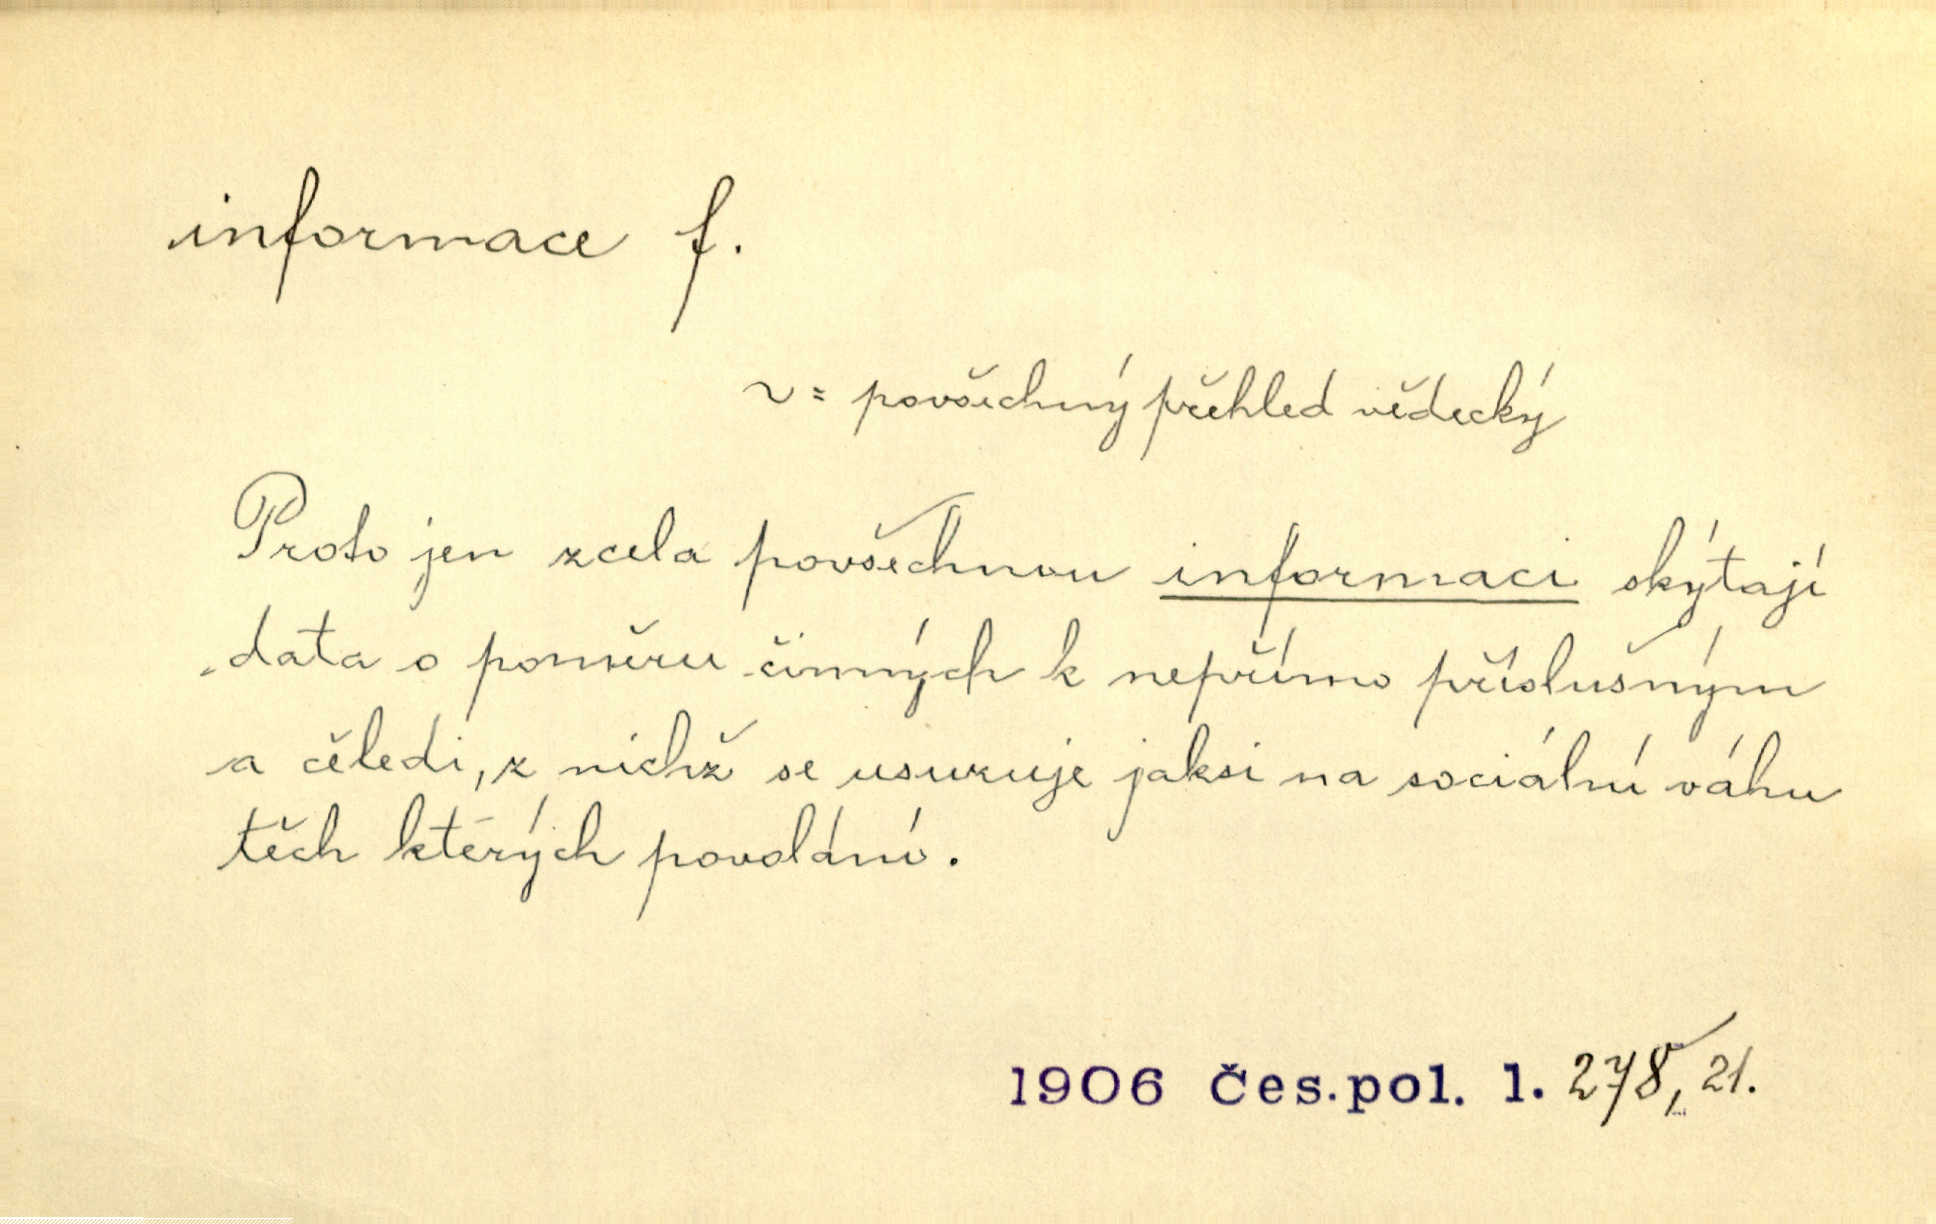 informace f.
~ = povšechný přehled vědecký
Proto jen zcela povšechnou informaci skýtají
data o poměru činných k nepřímo příslušným
a čěledi, z nichž se usuzuje jaksi na sociální váhu
těch kterých povolání.
1906 Čes.pol. 1. 278, 21.